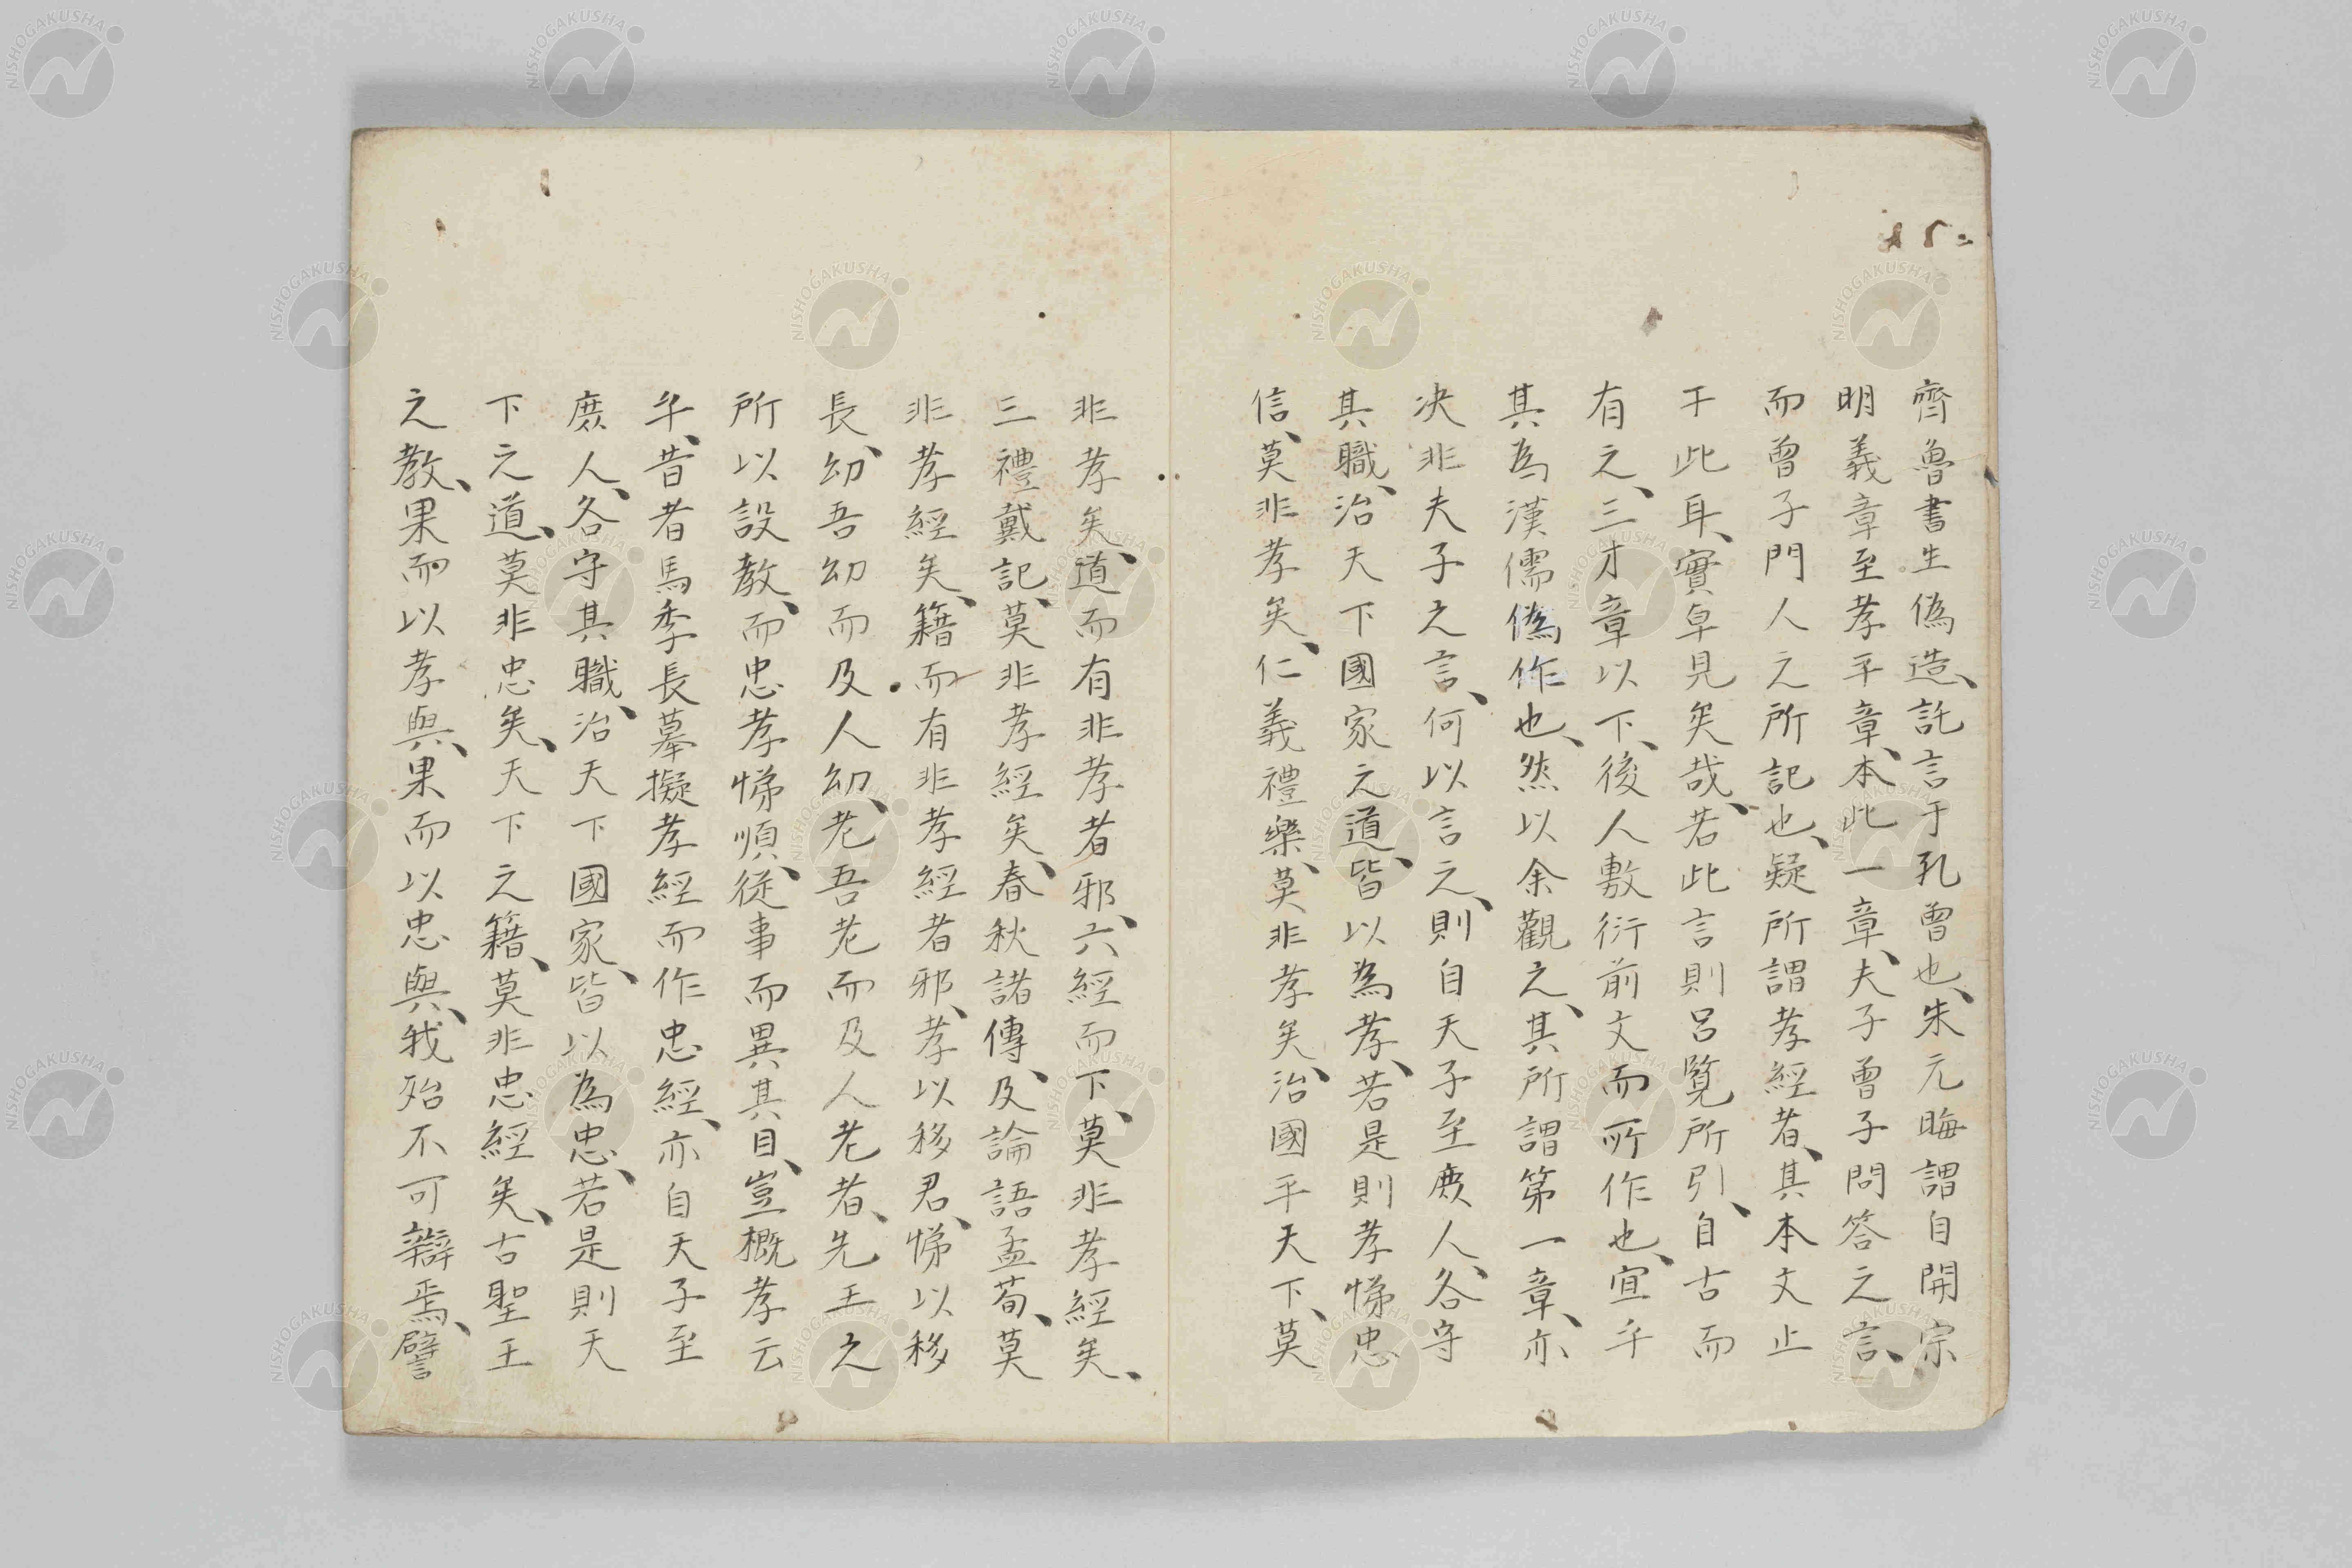 齊魯書生偽造、託言于孔曾也、朱元晦謂自開宗
明義章至孝平章、本此一章、夫子曾子問答之言、
而曾子門人之所記也、疑所謂孝經者、其本文止
于此耳、實卓見矣哉、若此言則呂覧所引、自古而
有之、三才章以下、後人敷衍前文而所作也、宜乎
其為漢儒偽作也、然以余觀之、其所謂第一章、亦
决非夫子之言、何以言之、則自天子至庻人、各守
其職、治天下國家之道、皆以為孝、若是則孝悌忠
信、莫非孝矣、仁義禮樂、莫非孝矣、治國平天下、莫
非孝矣、道而有非孝者邪、六經而下、莫非孝經矣、
三禮戴記、莫非孝經矣、春秋諸傳、及論語孟荀、莫
非孝經矣、籍而有非孝經者邪、孝以移君、悌以移
長、幼吾幼而及人幼、老吾老而及人老者、先王之
所以設教、而忠孝悌順、従事而異其目、豈概孝云
乎、昔者馬季長摹擬孝經而作忠經、亦自天子至
庻人、各守其職、治天下國家、皆以為忠、若是則天
下之道、莫非忠矣、天下之籍、莫非忠經矣、古聖王
之教、果而以孝與、果而以忠與、我殆不可辯焉、譬
NISHOGAKUSHA